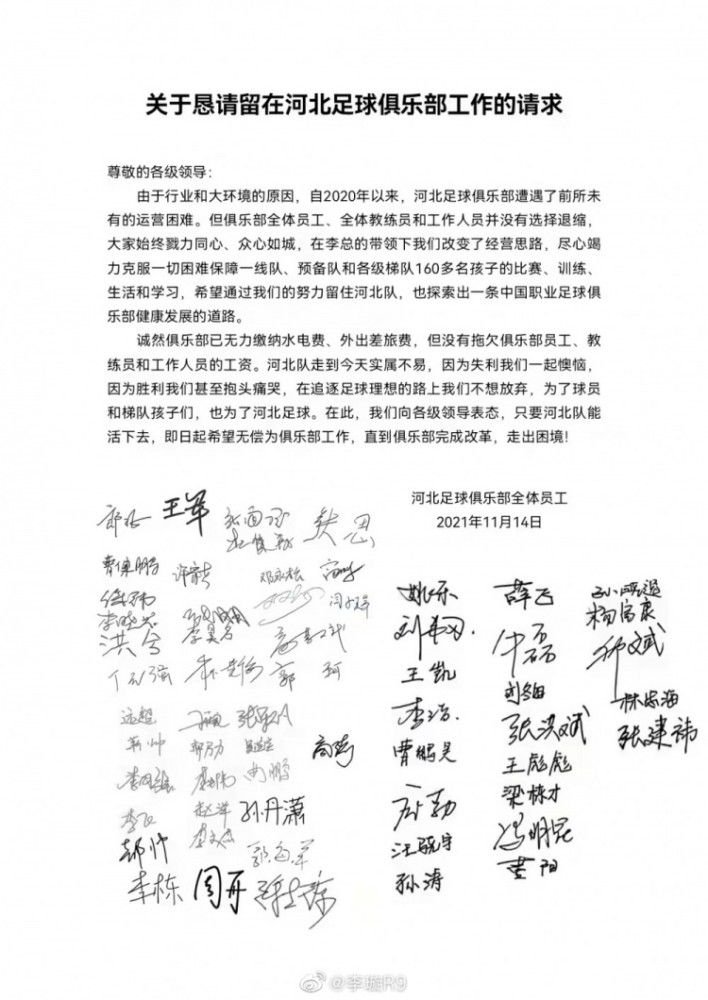 关于恳请留在河北足球俱乐部工作的请求
尊敬的各级领导：
由于行业和大环境的原因，自2020年以来，河北足球俱乐部遭遇了前所未
有的运营困难。但俱乐部全体员工、全体教练员和工作人员并没有选择退缩，
大家始终戮力同心、众心如城，在李总的带领下我们改变了经营思路，尽心竭
力克服一切困难保障一线队、预备队和各级梯队160多名孩子的比赛、训练、
生活和学习，希望通过我们的努力留住河北队，也探索出一条中国职业足球俱
乐部健康发展的道路。
诚然俱乐部已无力缴纳水电费、外出差旅费，但没有拖欠俱乐部员工、教
练员和工作人员的工资。河北队走到今天实属不易，因为失利我们一起懊恼，
因为胜利我们甚至抱头痛哭，在追逐足球理想的路上我们不想放弃，为了球员
和梯队孩子们，也为了河北足球。在此，我们向各级领导表态，只要河北队能
活下去，即日起希望无偿为俱乐部工作，直到俱乐部完成改革，走出困境！
河北足球俱乐部全体员工
2021年11月14日
王军
姚乐 薛飞
杨富康
王凯
林志海
李浩 张洪斌 张建祎
曹鹏昊 王彪彪
梁栋才
汪晓宇 冯明昆
孙涛 董阳
远超
高巍
孙丹潇
郝帅 郭海军
李栋 周丹
@李璇R9